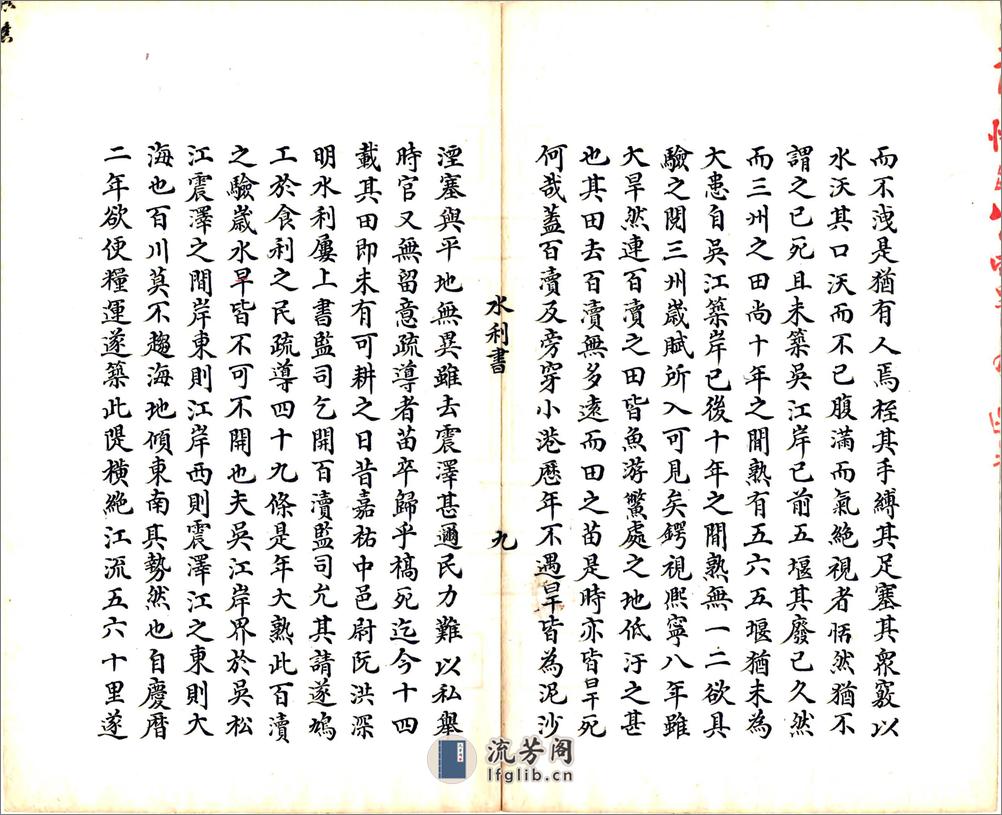 而不洩是猶有人焉桎其手縛其足塞其衆竅以
水沃其口沃而不已腹滿而氣絶視者恬然猶不
謂之已死且未築吳江岸已前五堰其廢已久然
而三州之田尚十年之閒熟有五六五堰猶未為
大患自吳江築岸已後十年之閒熟無一二欲具
驗之閱三州歲賦所入可見矣鍔視熙寧八年雖
大旱然連百瀆之田皆魚游鱉處之地低汙之甚
也其田去百瀆無多遠而田之苗是時亦皆旱死
何哉蓋百瀆及旁穿小港歷年不遇旱皆為泥沙
水利書
九
湮塞與平地無異雖去震澤甚邇民力難以私舉
時官又無留意疏導者苗卒歸乎槁死迄今十四
載其田即未有可耕之日昔嘉祐中邑尉阮洪深
明水利屢上書監司乞開百瀆監司允其請遂鳩
工於食利之民疏導四十九條是年大熟此百瀆
之驗歲水旱皆不可不開也夫吳江岸界於吳松
江震澤之閒岸東則江岸西則震澤江之東則大
海也百川莫不趨海地傾東南其勢然也自慶暦
二年欲便糧運遂築此隄横絶江流五六十里遂
流芳阁
lfglib.cn